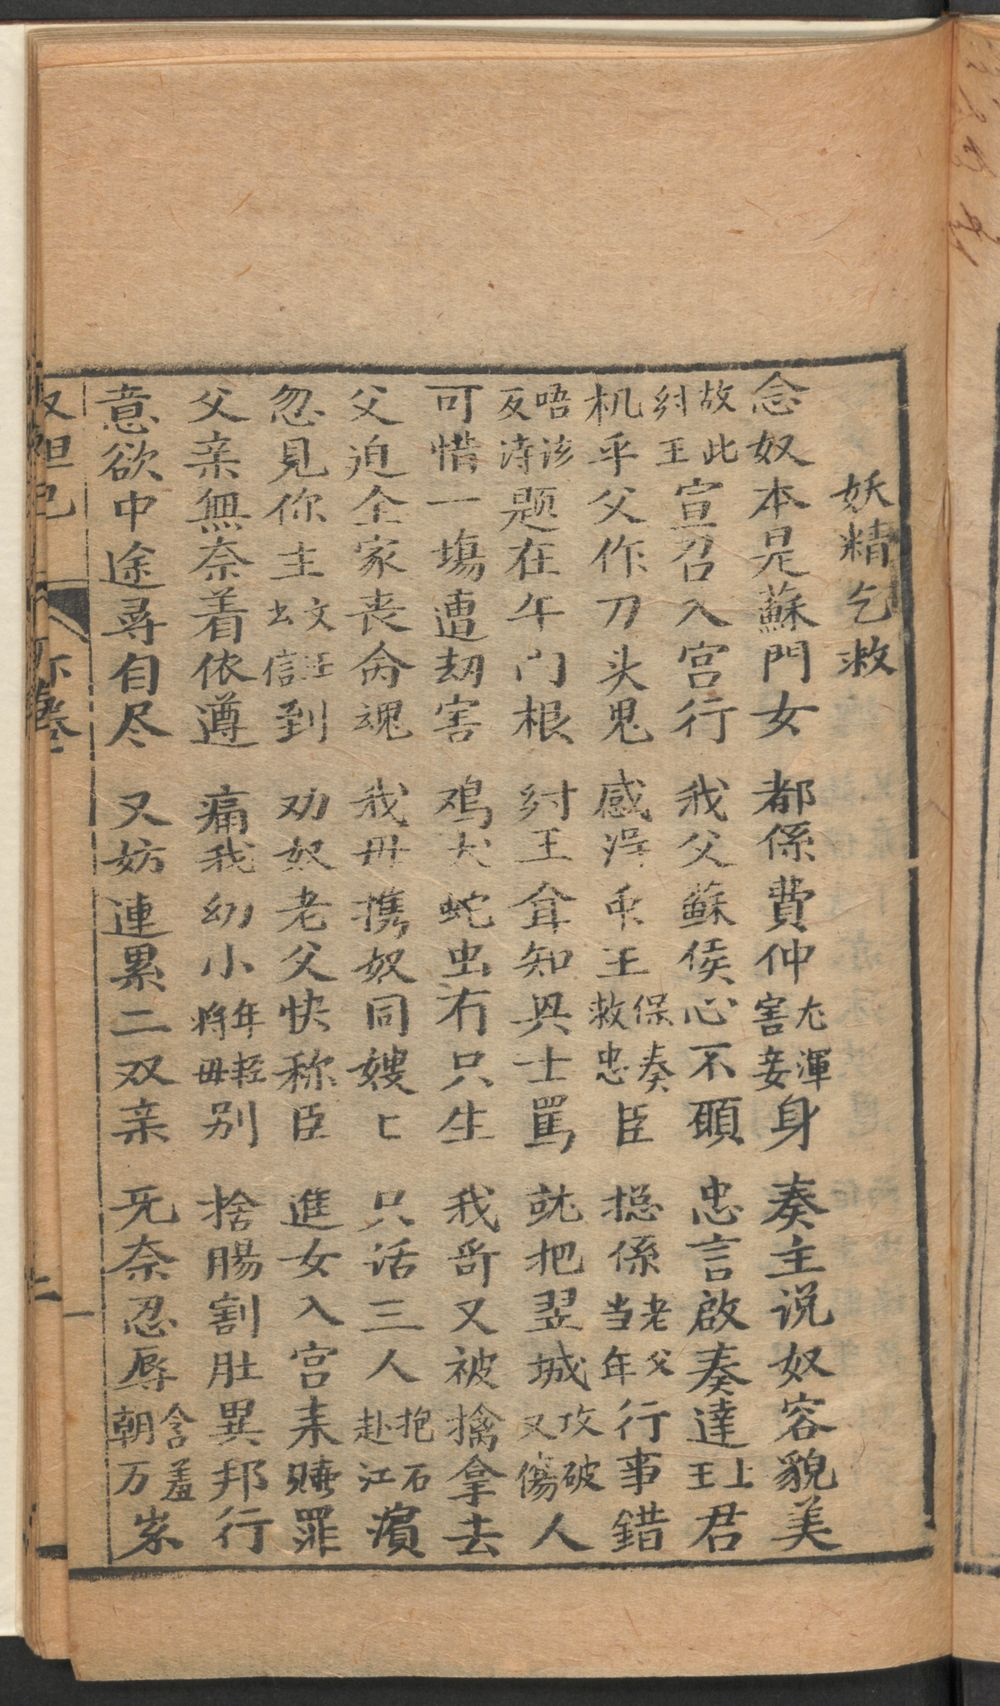 妖精乞救
念奴本是蘇門女 都係費仲尤渾害妾身 奏主说奴容貌美
故此紂王宣召入宫行 我父蘇侯心不願 忠言啟奏達上王君
机乎父作刀头鬼 感得𠂹王保奏救忠臣 揔係老父当年行事錯
唔该反诗题在午门根 紂王耸知異士罵 就把翌城攻破又傷人
可惜一塲遭刼害 鸡犬蛇虫冇只生 我哥又被擒拿去
父迫全家丧命魂 我母携奴同嫂匕 只话三人抱石赴江濵
忽见你主文王去信到 劝奴老父快称臣 進女入宫来赎罪
父亲無奈着依遵 痛我幼小年轻将母别 捨腸割肚異邦行
意欲中途尋自尽 又妨連累二双亲 无奈忍辱含羞朝万岁
反妲己 下卷 二